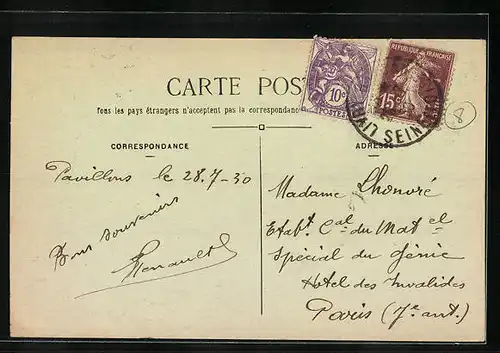 REPUBLIQUE FRANÇAISE
10c
POSTES
15c
SEINE
8
CARTE POST
Tous les pays étrangers n'acceptent pas la correspondance
CORRESPONDANCE
ADRESSE
Pavillons le 28.7-30
Bons souvenirs
Renault
Madame Lhonoré
Etabt Cal du Mat el
Spécial du Génie
Hotel des Invalides
Paris (7e arrt.)